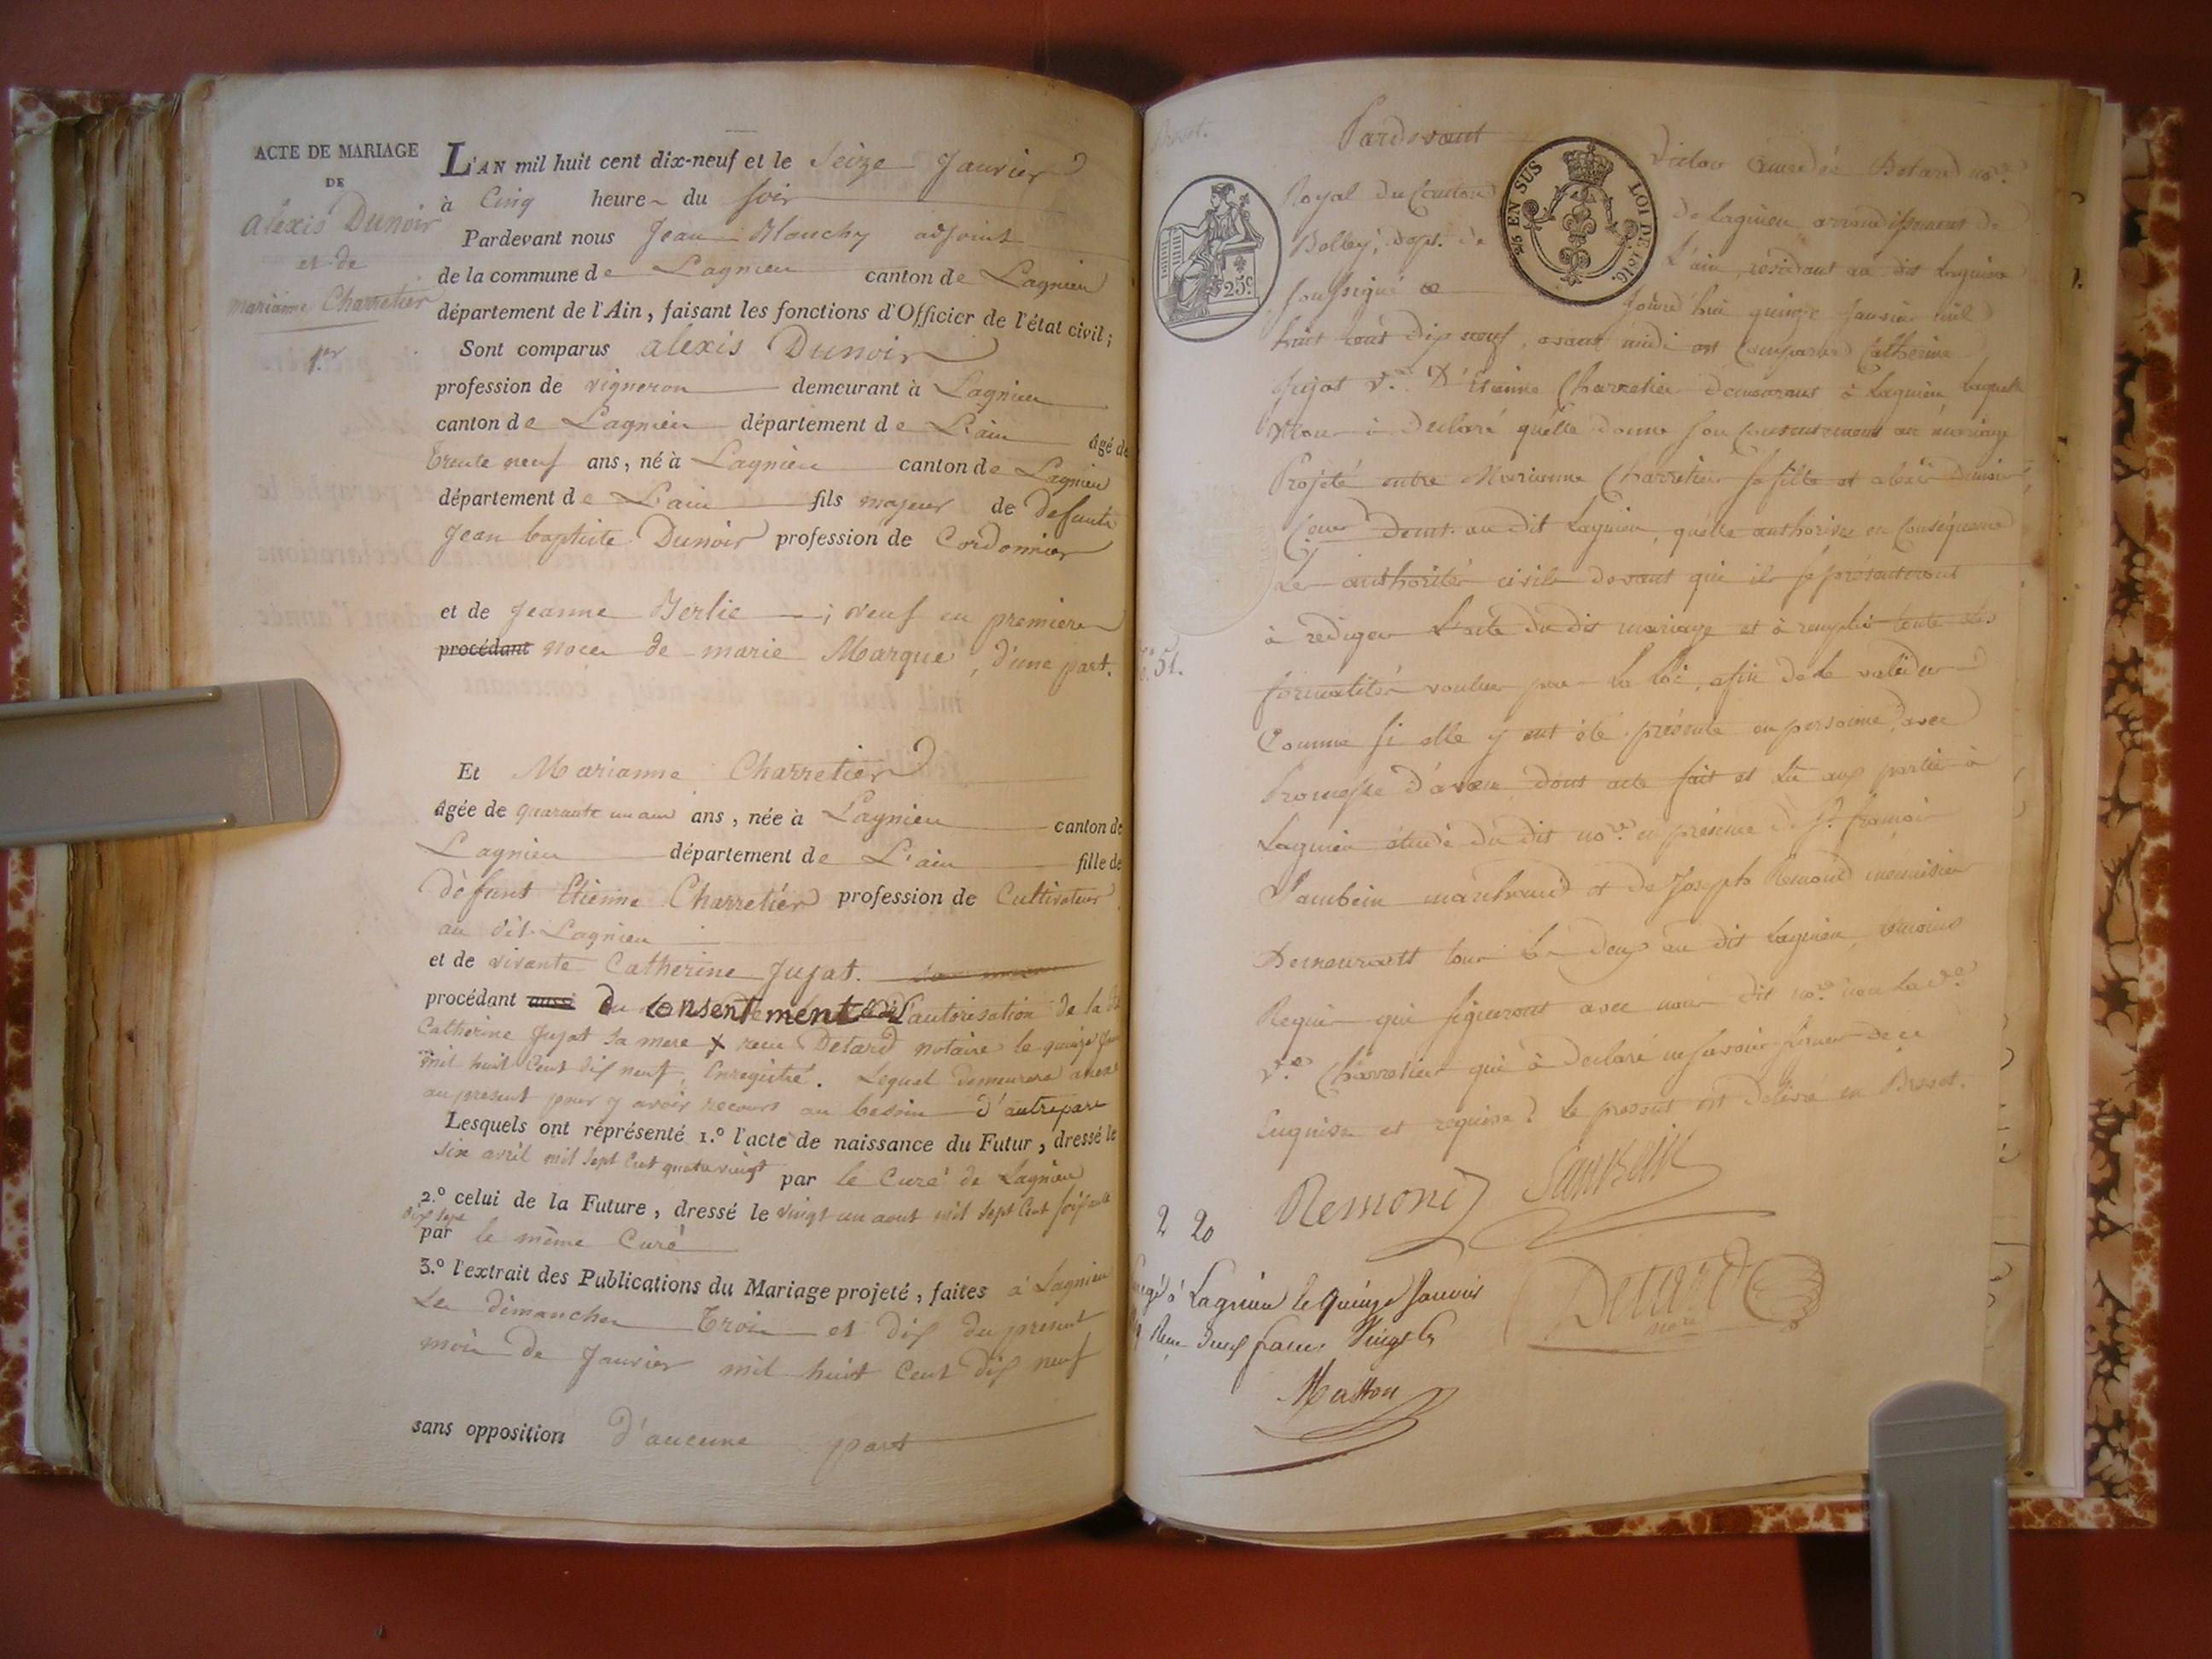 ACTE DE MARIAGE
DE
alexis Dunoir
et de
marianne Charretier
1.er
L'AN mil huit cent dix-neuf et le Seize Janvier
à Cinq heure du soir
Pardevant nous Jean adjoint
de la commune de Lagnieu canton de Lagnieu
département de l'Ain, faisant les fonctions d'Officier de l'état civil;
Sont comparus alexis Dunoir
profession de vigneron demeurant à Lagnieu
canton de Lagnieu département de L'ain âgé de
trente neuf ans, né à Lagnieu canton de Lagnieu
département de L'ain fils majeur de defunts
Jean baptiste Dunoir profession de Cordonnier
et de Jeanne Berlie; veuf en premiere
procédant noces de marie Marque, d'une part.
Et Marianne Charretier
âgée de quarante un ans ans, née à Lagnieu canton de
Lagnieu département de L'ain fille de
défunt Etienne Charretier profession de Cultivateur
au dit Lagnieu
et de vivante Catherine Jujat.
procédant aussi du consentement autorisation de la
Catherine Jujat sa mere x recu Detard notaire le quinze
mil huit Cent dix neuf, Enregistré. Lequel demeurera anexé
au present pour y avoir recours au besoin d'autre part
Lesquels ont représenté 1.º l'acte de naissance du Futur, dressé le
six avril mil sept Cent quatrevingt par le Curé de Lagnieu
2.º celui de la Future, dressé le vingt un aout mil sept Cent soixante
dix sept
par le même Curé
3.º l'extrait des Publications du Mariage projeté, faites à Lagnieu
Les dimanches Trois et dix du present
mois de Janvier mil huit Cent dix neuf
sans opposition D'aucune part
Brevet.
Pardevant Victor Amedée Detard no.re
Royal du Canton de Lagnieu arrondissement de
Belley, dept. de L'ain, residant au dit Lagnieu
soussigné ce jourd'hui quinze Janvier mil
huit cent dix neuf, avant midi est Comparue Catherine
Jujat v.e D'Etienne Charretier demeurant à Lagnieu laquelle
à declaré qu'elle donne son Consentement au mariage
Projeté entre Marianne Charretier sa fille et alexis dunoir
demt. au dit Lagnieu, qu'elle authorise en Conséquence
Les authorités civiles devant qui ils se présenteront
à rediger L'acte du dit mariage et à remplir toute les
formalités voulues par La Loi, afin de le valider
Comme si elle y eut été présente en personne, avec
Promesse d'aveu, dont acte fait et lu aux parties à
Lagnieu étude du dit no.re en présence de Sr. françois
Sambein marchand et de Joseph Remond menuisier
Demeurant tous les deux au dit Lagnieu, témoins
Requis qui signeront avec nous dit no.re non La d.e
v.e Charretier qui à declaré ne savoir signer de ce
Enquise et requise. le present est delivré en Brevet.
51.
25.c
25 EN SUS
LOI DE 1816.
Remond Sambein
Detard
no.re
2 20
à Lagnieu le quinze Janvier
Reçu deux francs vingt c
Matton